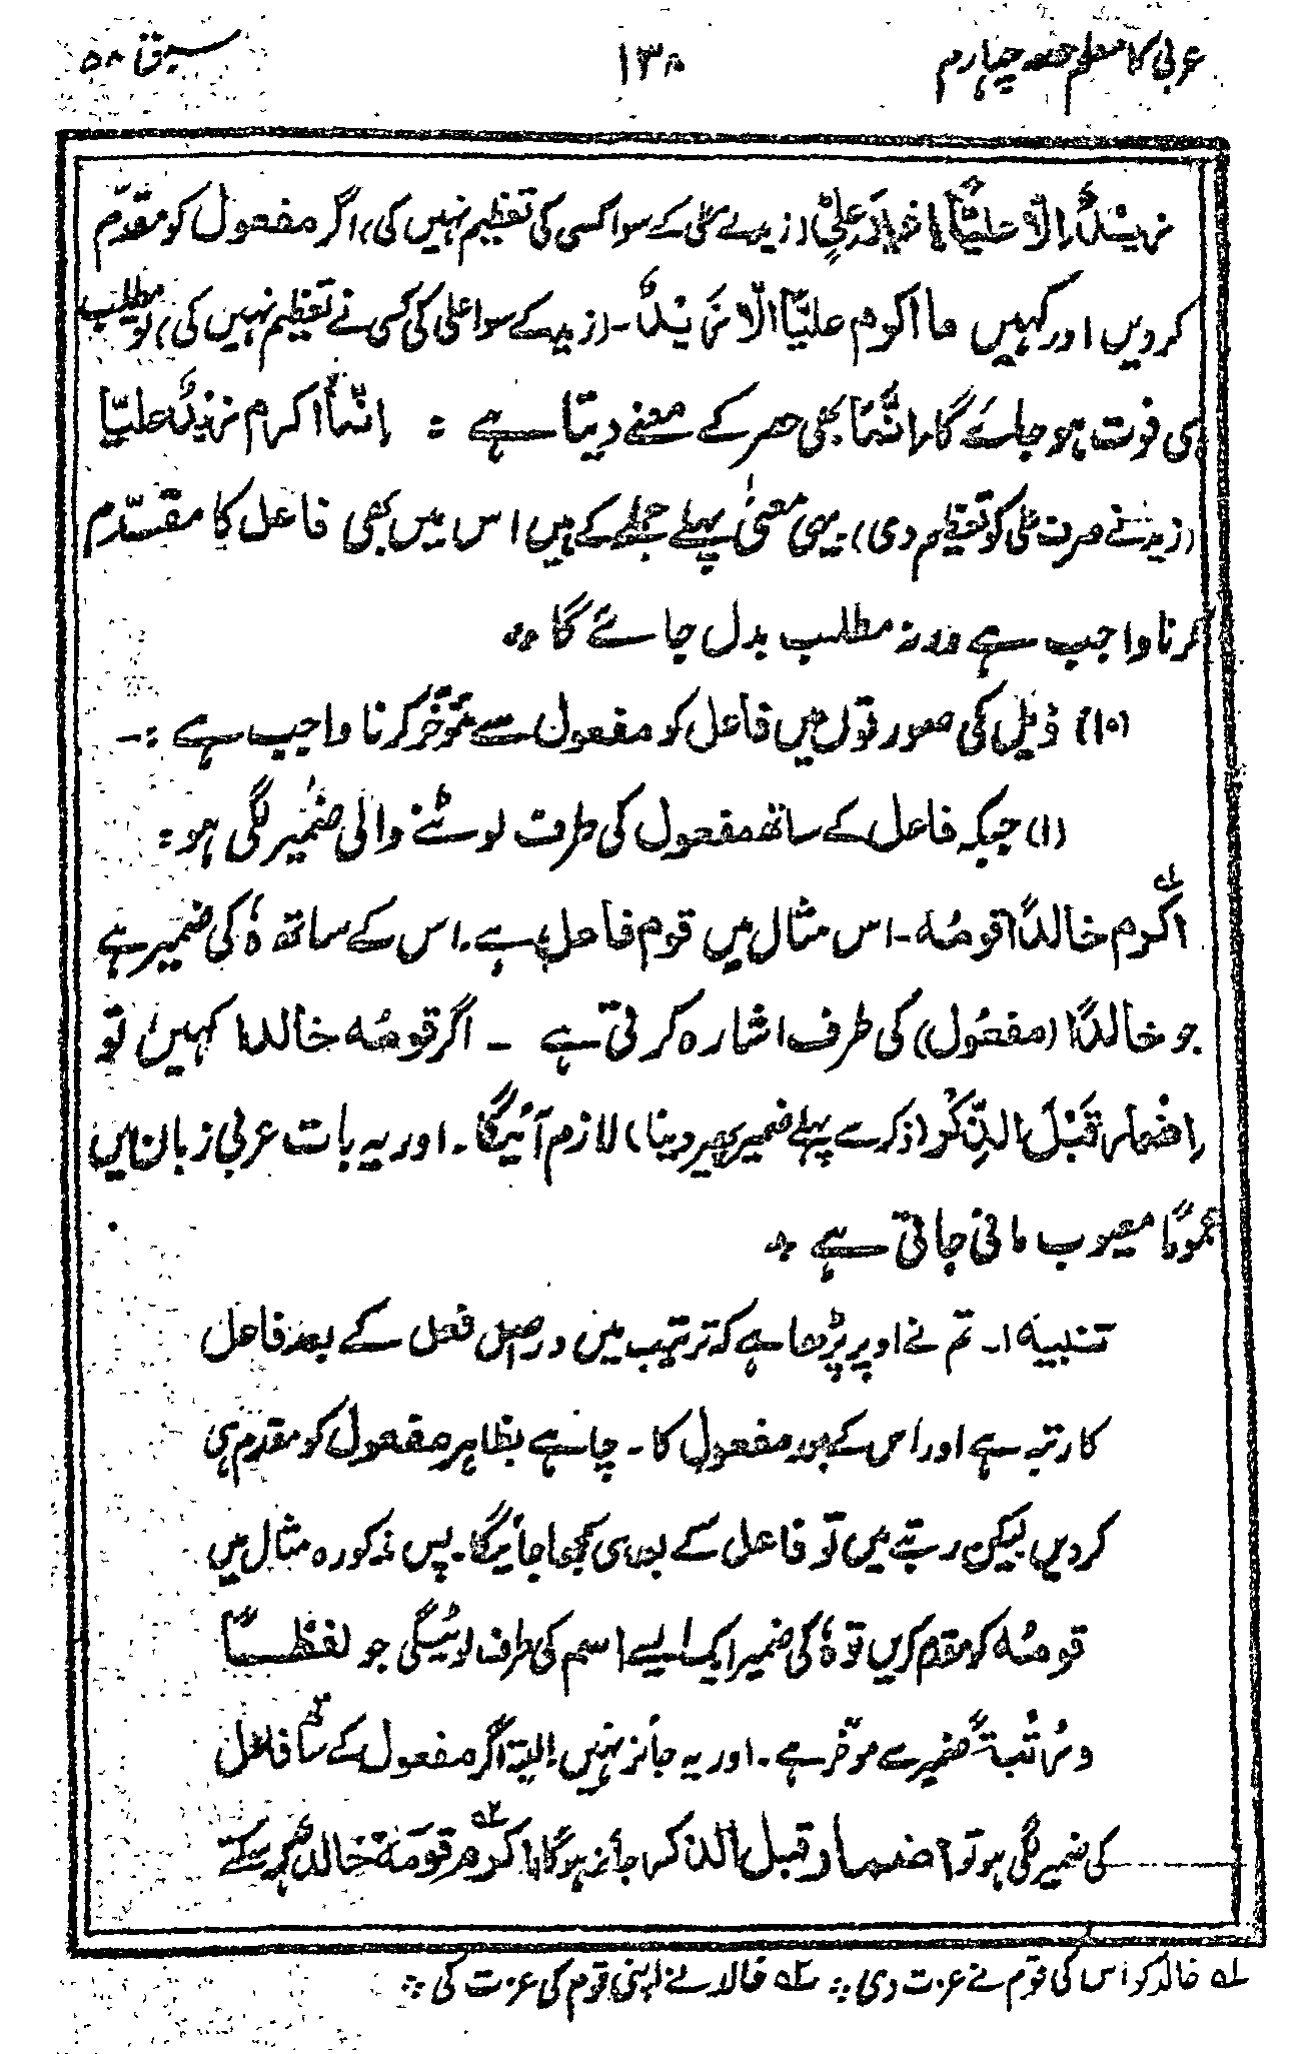 عربی کا معلم حصہ چہارم ۱۳۸ سبق ۵۸
زَیْدٌ اِلّا علیًّا غیرَ علیٍّ (زید نے علی کے سوا کسی کی تعظیم نہیں کی) اگر مفعول کو مقدّم
کردیں اور کہیں ما اکرم علیًّا الّا زَیْدٌ ۔ (زید کے سوا علی کی کسی نے تعظیم نہیں کی) تو مطلب
ہی فوت ہو جائے گا، اِنَّمَا بھی حصر کے معنے دیتا ہے : اِنّما اکرم زیدٌ علیّا
(زید نے صرف علی کو تعظیم دی) یہی معنیٰ پہلے جملے کے ہیں اس میں بھی فاعل کا مقدّم
کرنا واجب ہے ورنہ مطلب بدل جائے گا
(۱۰) ذیل کی صورتوں میں فاعل کو مفعول سے مؤخّر کرنا واجب ہے :۔
(۱) جبکہ فاعل کے ساتھ مفعول کی طرف لوٹنے والی ضمیر لگی ہو :
اکرم خالدًا قومُہ ۱؎ ۔ اس مثال میں قوم فاعل ہے ۔ اس کے ساتھ ہٗ کی ضمیر ہے
جو خالدًا (مفعُول) کی طرف اشارہ کرتی ہے ۔ اگر قومُہ خالدا کہیں تو
اِضْمار قَبْلَ الذِّکْر (ذکر سے پہلے ضمیر پھیر دینا) لازم آئیگا ۔ اور یہ بات عربی زبان میں
عمومًا معیوب مانی جاتی ہے
تنبیہ ۱۔ تم نے اوپر پڑھا ہے کہ ترتیب میں دراصل فعل کے بعد فاعل
کا رتبہ ہے اور اس کے بعد مفعول کا ۔ چاہے بظاہر مفعول کو مقدم ہی
کردیں لیکن رتبے میں تو فاعل کے بعد ہی سمجھا جائیگا ۔ پس مذکورہ مثال میں
قومُہ کو مقدم کریں تو ہٗ کی ضمیر ایک ایسے اسم کی طرف لوٹیگی جو لفظًا
و رُتْبۃً ضمیر سے مؤخر ہے ۔ اور یہ جائز نہیں البتہ اگر مفعول کے ساتھ فاعل
کی ضمیر لگی ہو تو اضمار قبل الذکر جائز ہوگا اکرم ۲؎ قومَہٗ خالدٌ کہہ سکتے
۱؎ خالد کو اس کی قوم نے عزت دی ۲؎ خالد نے اپنی قوم کی عزت کی